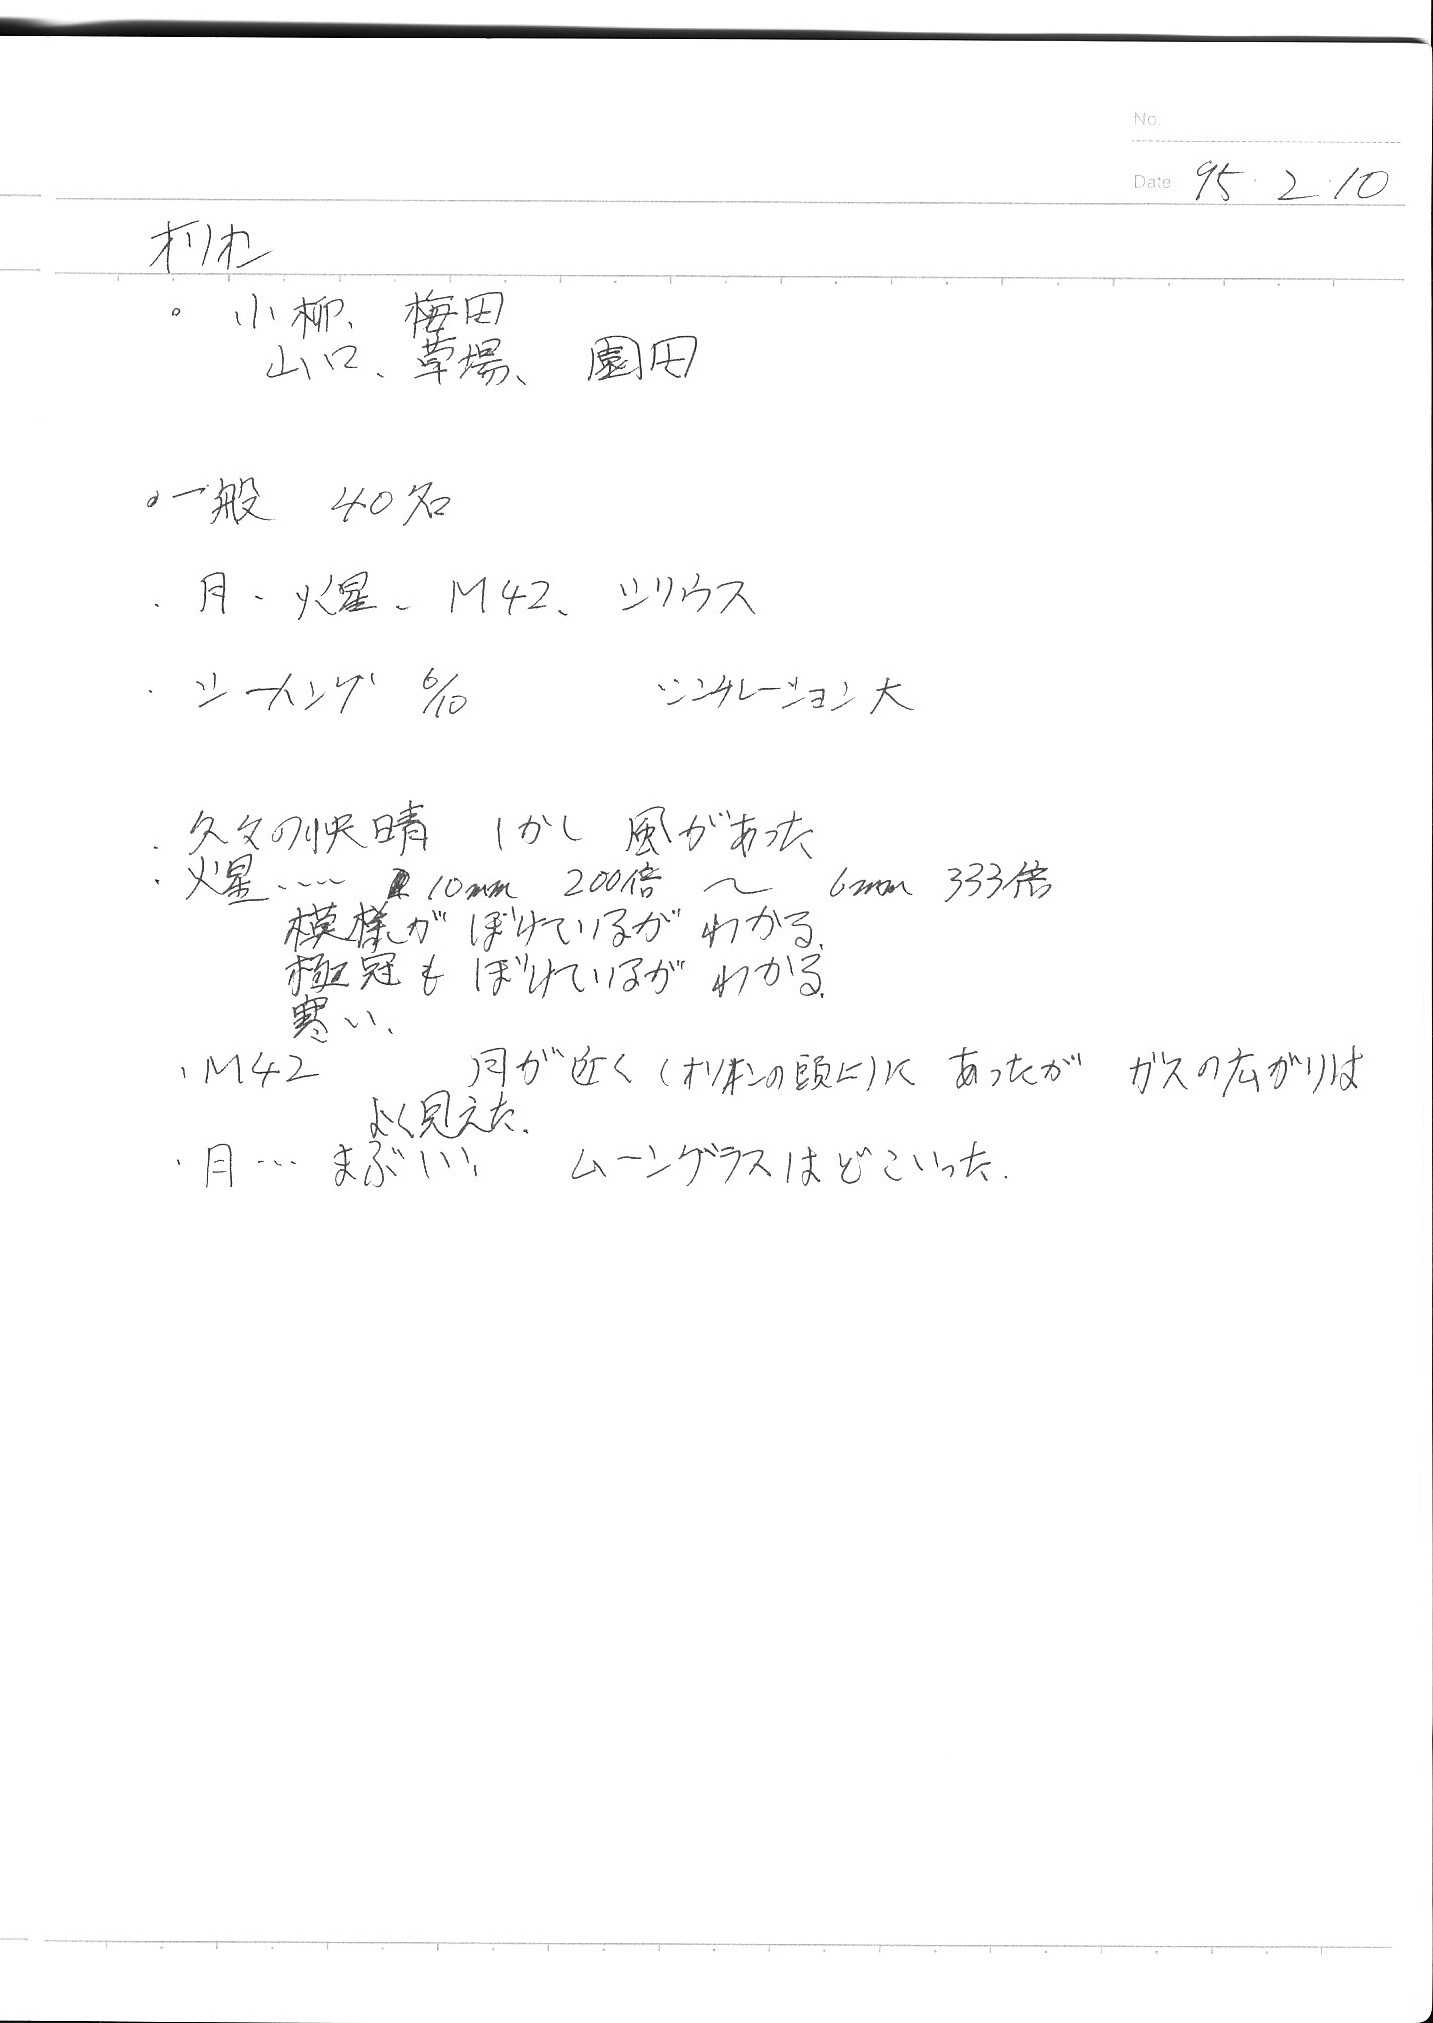 No.
Date 95・2・10
オリオン
。小柳、梅田
山口、草場、園田
。一般 40名
・月、火星、M42、シリウス
・シーイング 6/10 シンチレーション大
・久々の快晴 しかし 風があった
・火星‥‥ 10mm 200倍 〜 6mm 333倍
模様が ぼけているが わかる.
極冠も ぼけているが わかる.
寒い.
・M42 月が近く(オリオンの頭上)に あったが ガスの広がりは
よく見えた.
・月… まぶしい. ムーングラスはどこいった.